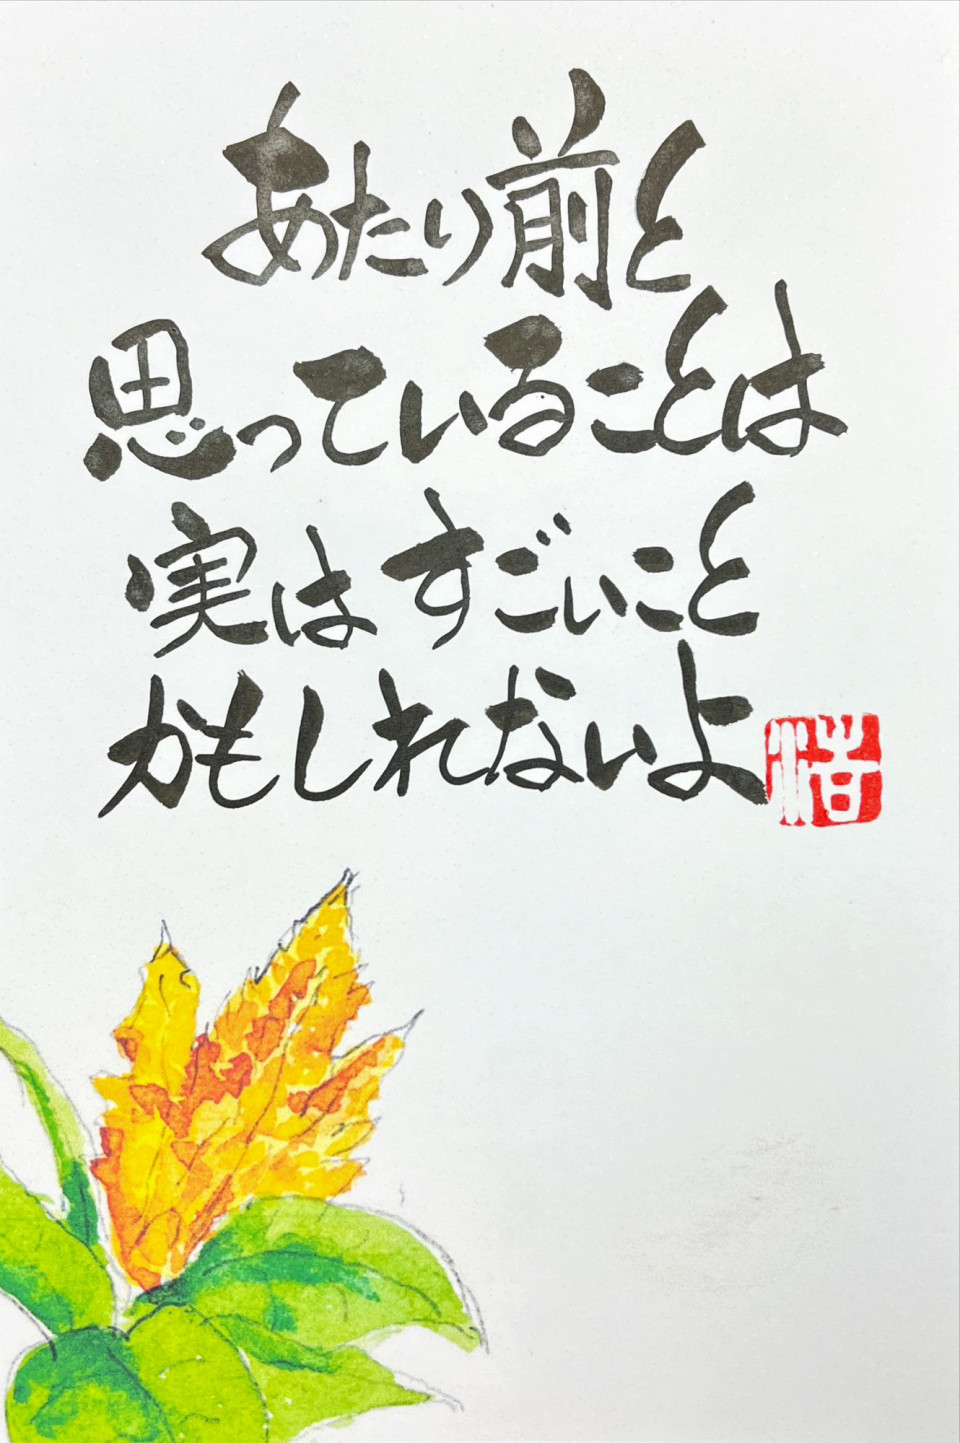 あたり前と
思っていることは
実はすごいこと
かもしれないよ